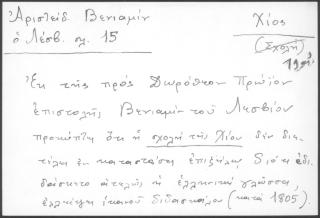 Ἀριστείδ. Βενιαμίν
ὁ Λέσβ. σλ. 15
Χίος
(Σχολή)
Ἐκ τῆς πρός Δωρόθεον Πρώϊον
ἐπιστολῆς Βενιαμίν τοῦ Λεσβίου
προκύπτει ὅτι ἡ σχολή τῆς Χίου δέν διε-
τέλει ἐν καταστάσει ἐπιζήλῳ διότι ἐδι-
δάσκετο ἀτελῶς ἡ ἑλληνική γλῶσσα,
ἐλλείψει ἱκανοῦ διδασκάλου (κατά 1805).